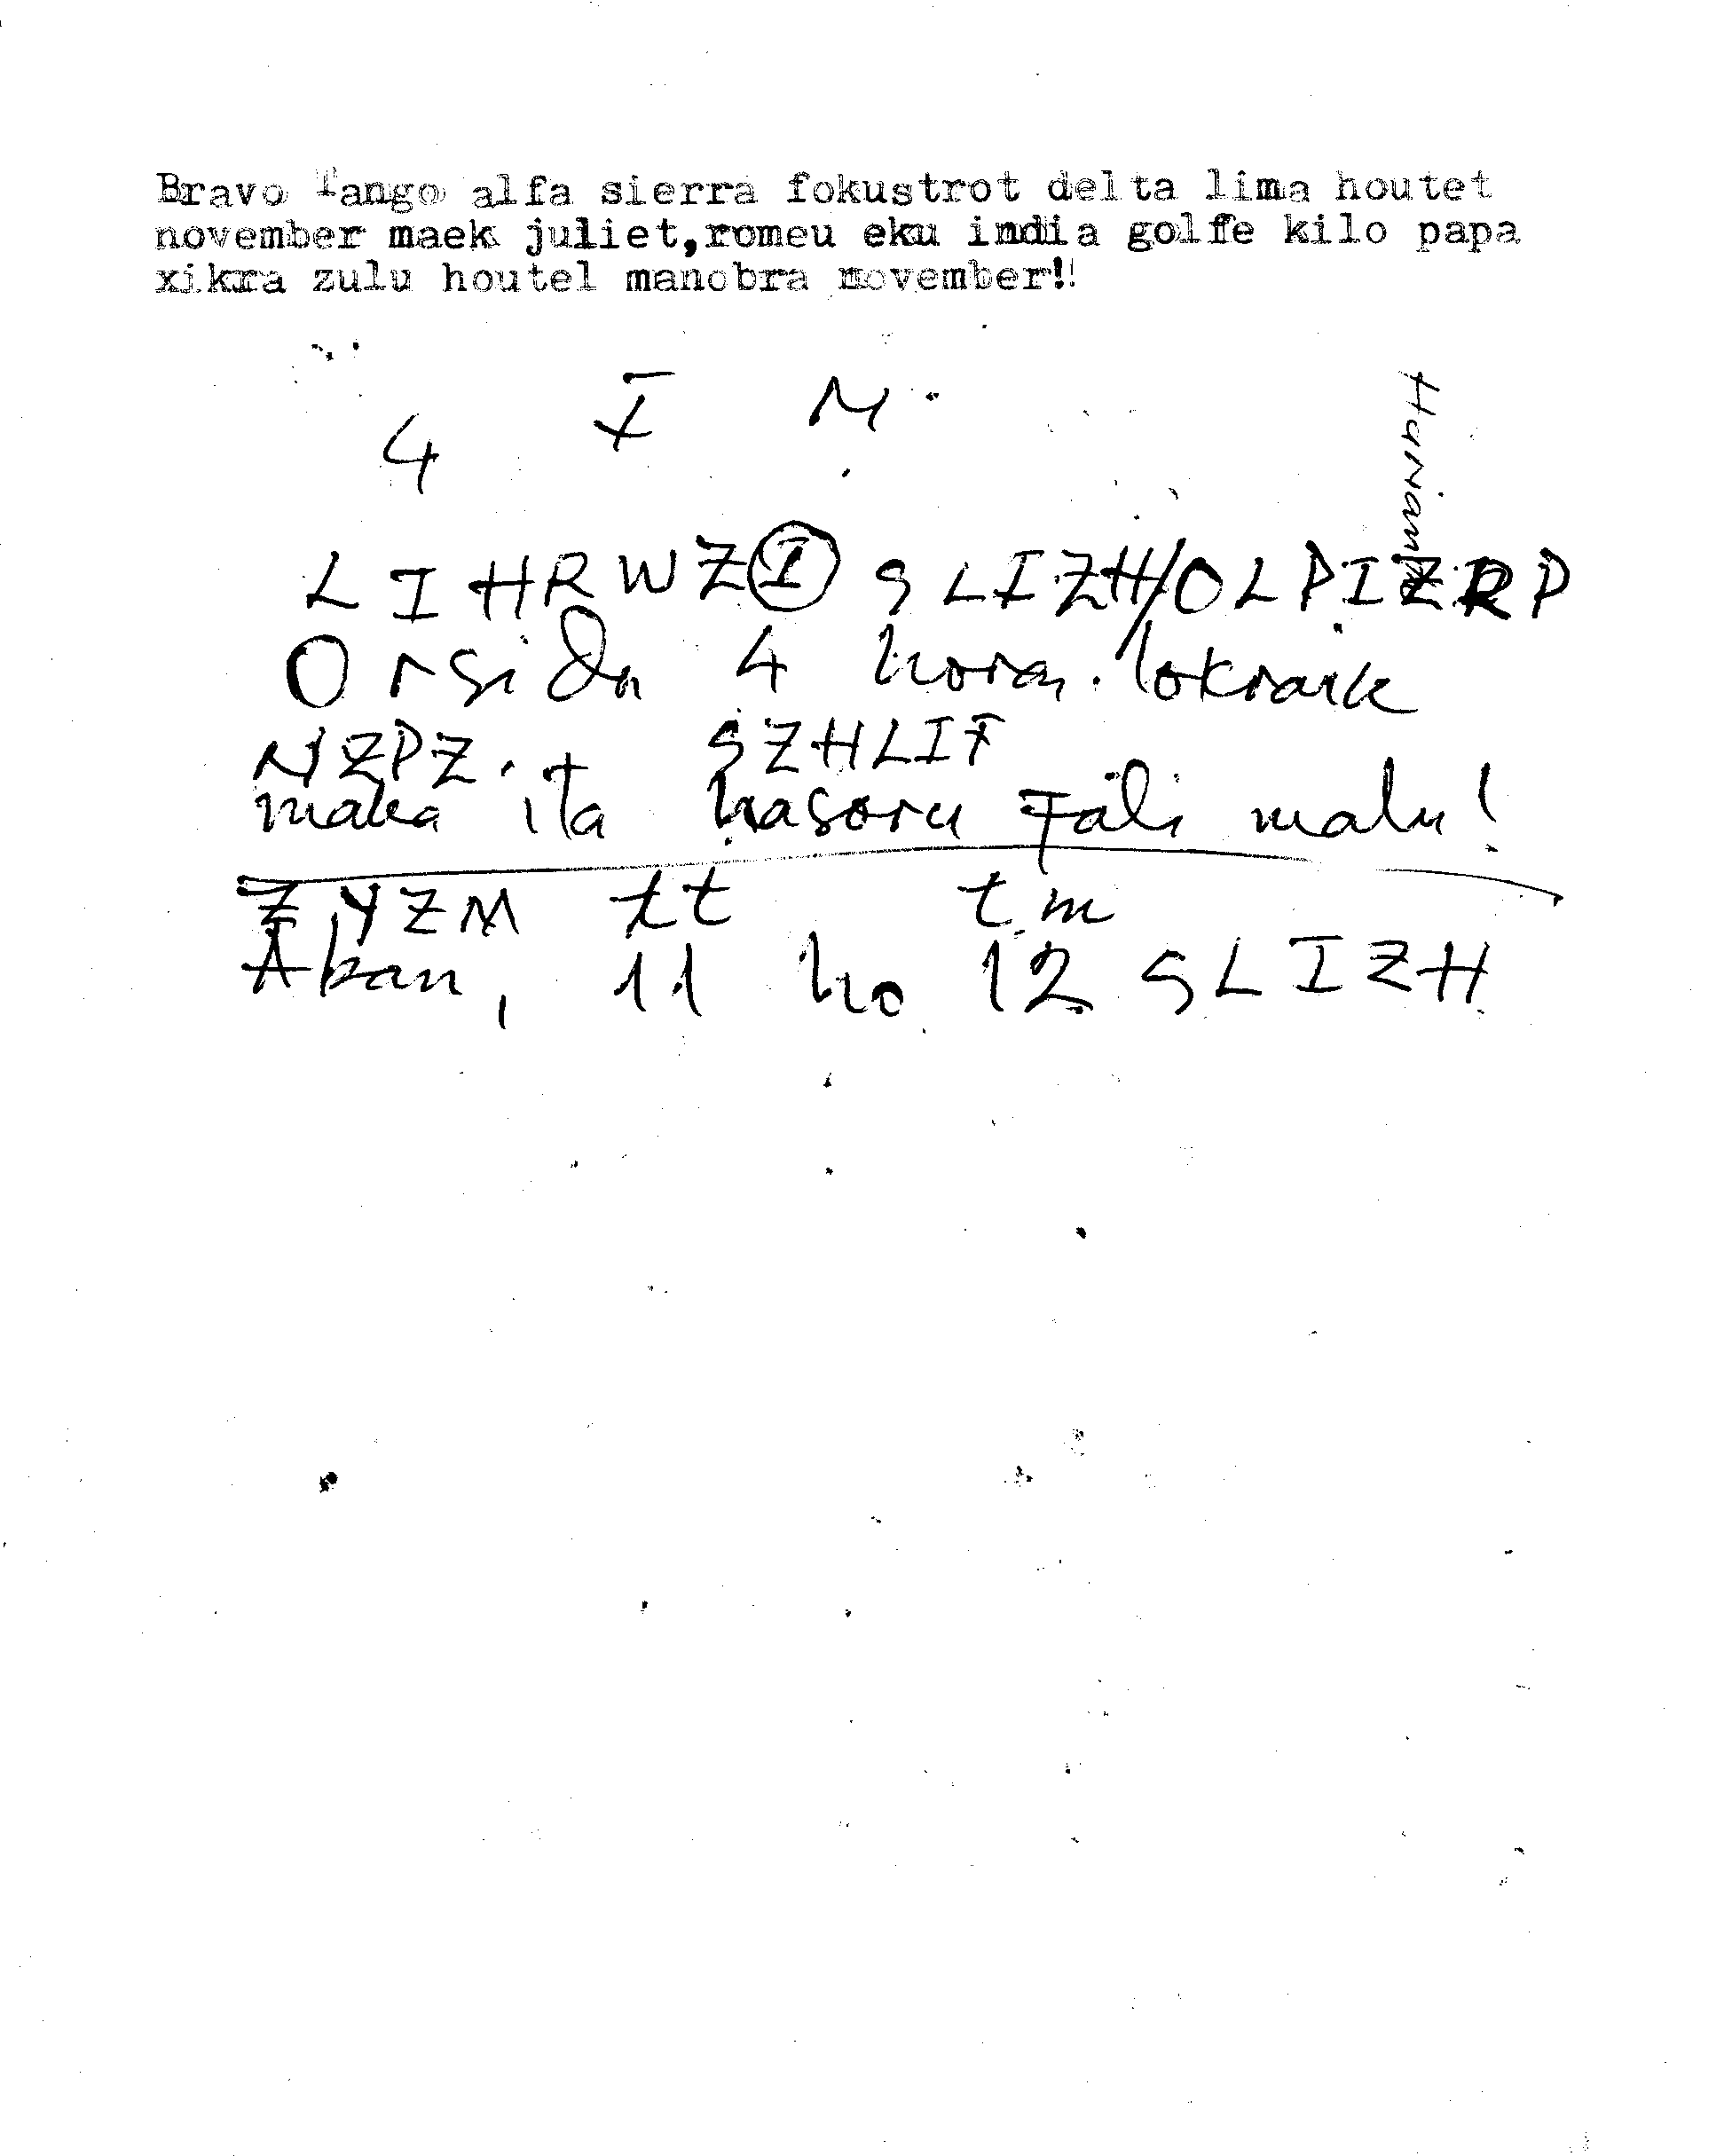 Bravo Tango alfa sierra fokustrot delta lima houtet
november maek juliet,romeu eku india golfe kilo papa
xikra zulu houtel manobra november!!
4 I M
LIHRWZI SLIZH/OLPIZRP
Orsida 4 horas. lokraik
NZPZ. SZHLIF
maka ita hasoru fali malu!
ZYZM tt tm
Aban, 11 ho 12 SLIZH